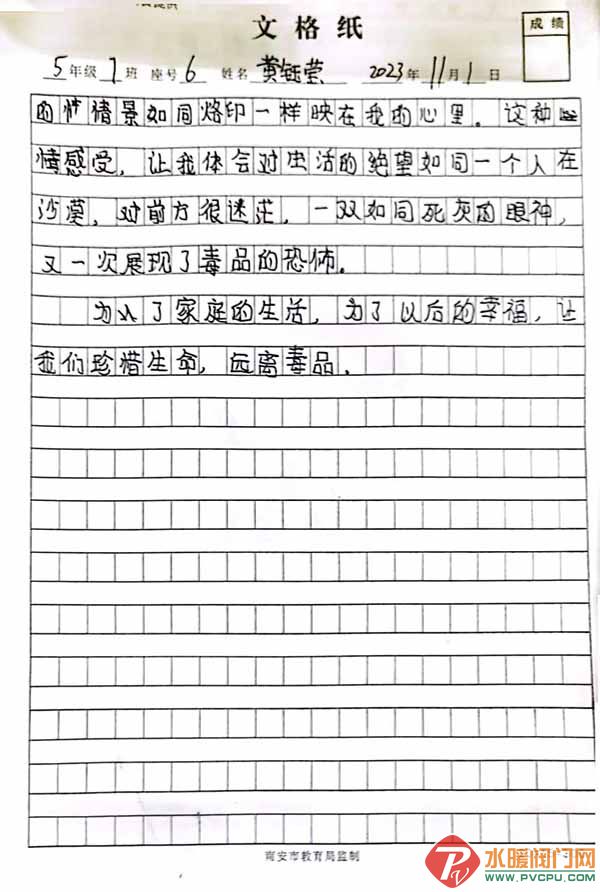 文格纸
成绩
5年级7班 座号6 姓名 黄钰莹 2023年11月1日
的情情景如同烙印一样映在我的心里。这种
情感受,让我体会对生活的绝望如同一个人在
沙漠,对前方很迷茫,一双如同死灰的眼神,
又一次展现了毒品的恐怖。
为了家庭的生活,为了以后的幸福,让
我们珍惜生命,远离毒品.
南安市教育局监制
水暖阀门网
WWW.PVCPU.COM